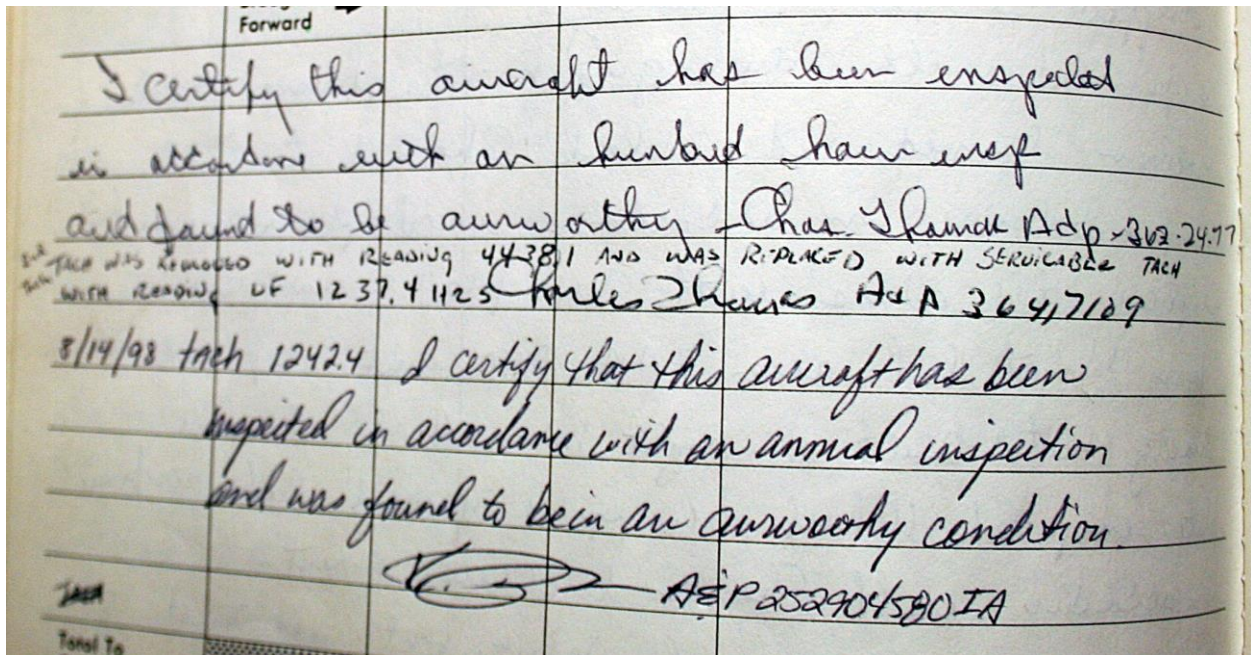 Forward
I certify this aircraft has been enspected
in accordone with an hunbred hour ensp
and found to be airworthy - Chas. Adp - 362.24.77
TACH WAS REMOVED WITH READING 4438.1 AND WAS REPLACED WITH SERVICABLE TACH
WITH READING OF 1237.4 HRS Charles A&P
8/14/98 tach 1242.4 I certify that this aircraft has been
inspected in accordance with an annual inspection
and was found to be in an airworthy condition.
A&P 252904580 IA
TACH
Total To